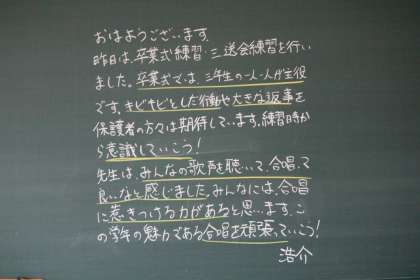 おはようございます。
昨日は、卒業式練習・三送会練習を行い
ました。卒業式では、三年生の一人一人が主役
です。キビキビとした行動や大きな返事を
保護者の方々は期待しています。練習時か
ら意識していこう！
先生は、みんなの歌声を聴いて、合唱って
良いなと感じました。みんなには、合唱
に惹きつける力があると思います。こ
の学年の魅力である合唱を頑張っていこう！
浩介